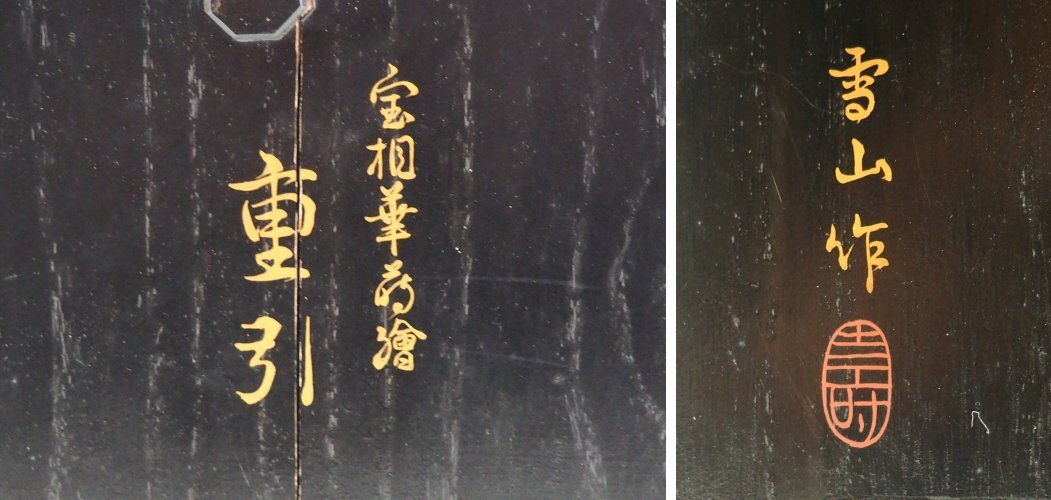 宝相華蒔繪
重引
雪山作